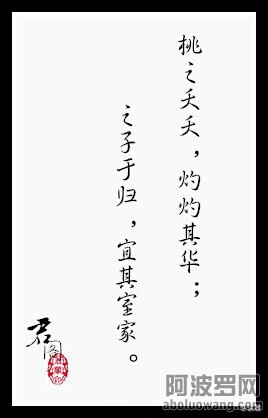 桃之夭夭，灼灼其华；
之子于归，宜其室家。
君
阿波罗网
aboluowang.com